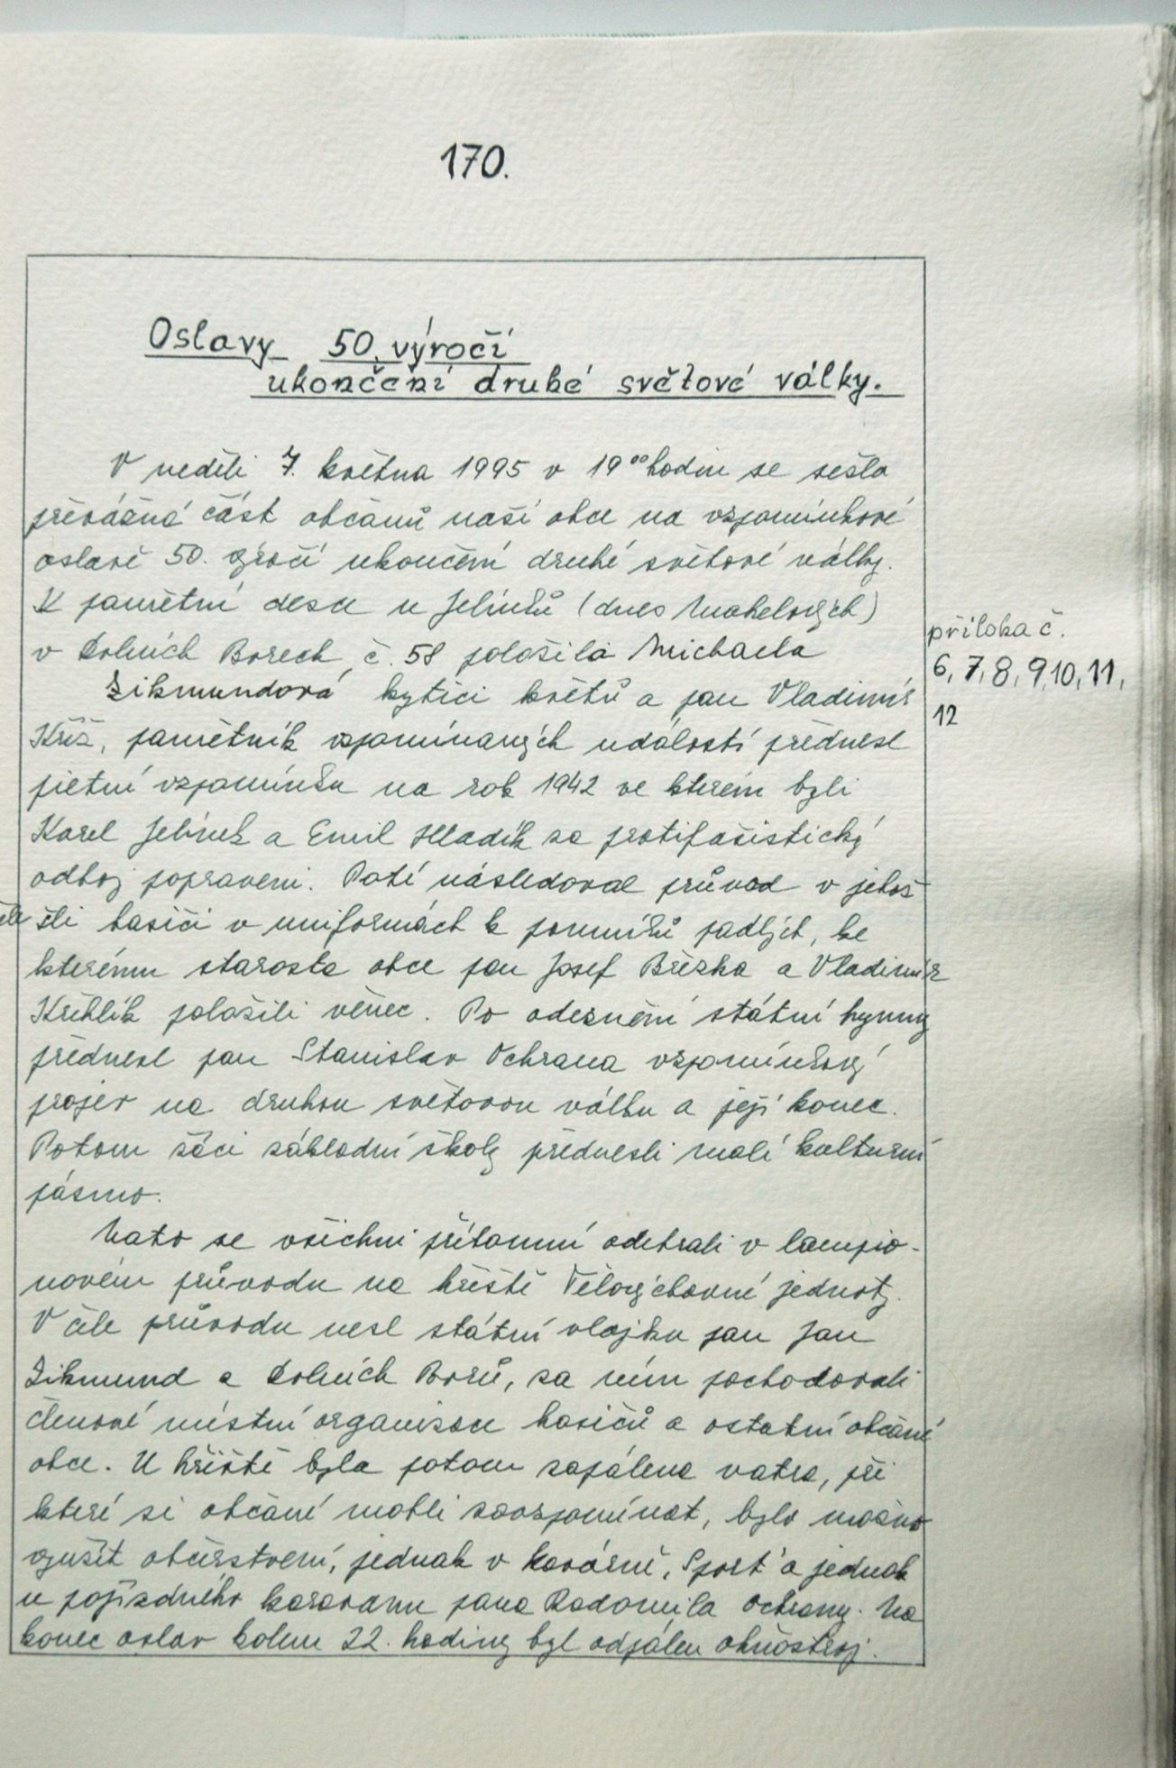 170.
Oslavy 50. výročí
ukončení druhé světové války.
V neděli 7. května 1995 v 19⁰⁰ hodin se sešla
převážná část občanů naší obce na vzpomínkové
oslavě 50. výročí ukončení druhé světové války.
K pamětní desce u Jelínků (dnes Machelových)
v Dolních Borech č. 58 položila Michaela
Zikmundová kytici květů a pan Vladimír
Kříž, pamětník vzpomínaných událostí přednesl
pietní vzpomínku na rok 1942 ve kterém byli
Karel Jelínek a Emil Hladík za protifašistický
odboj popraveni. Poté následoval průvod v jehož
čele šli hasiči v uniformách k pomníku padlých, ke
kterému starosta obce pan Josef Březka a Vladimír
Křehlík položili věnec. Po odeznění státní hymny
přednesl pan Stanislav Ochrana vzpomínkový
projev na druhou světovou válku a její konec.
Potom žáci základní školy přednesli malé kulturní
pásmo.
Nato se všichni přítomní odebrali v lampio-
novém průvodu na hřiště Tělovýchovné jednoty.
V čele průvodu nesl státní vlajku pan Jan
Zikmund z Dolních Borů, za ním pochodovali
členové místní organizace hasičů a ostatní občané
obce. U hřiště byla potom zapálena vatra, při
které si občané mohli zavzpomínat, bylo možno
využít občerstvení, jednak v kavárně „Sport" a jednak
u pojízdného karavanu pana Radomila Ochrany. Na
konec oslav kolem 22. hodiny byl odpálen ohňostroj.
příloha č.
6, 7, 8, 9, 10, 11,
12